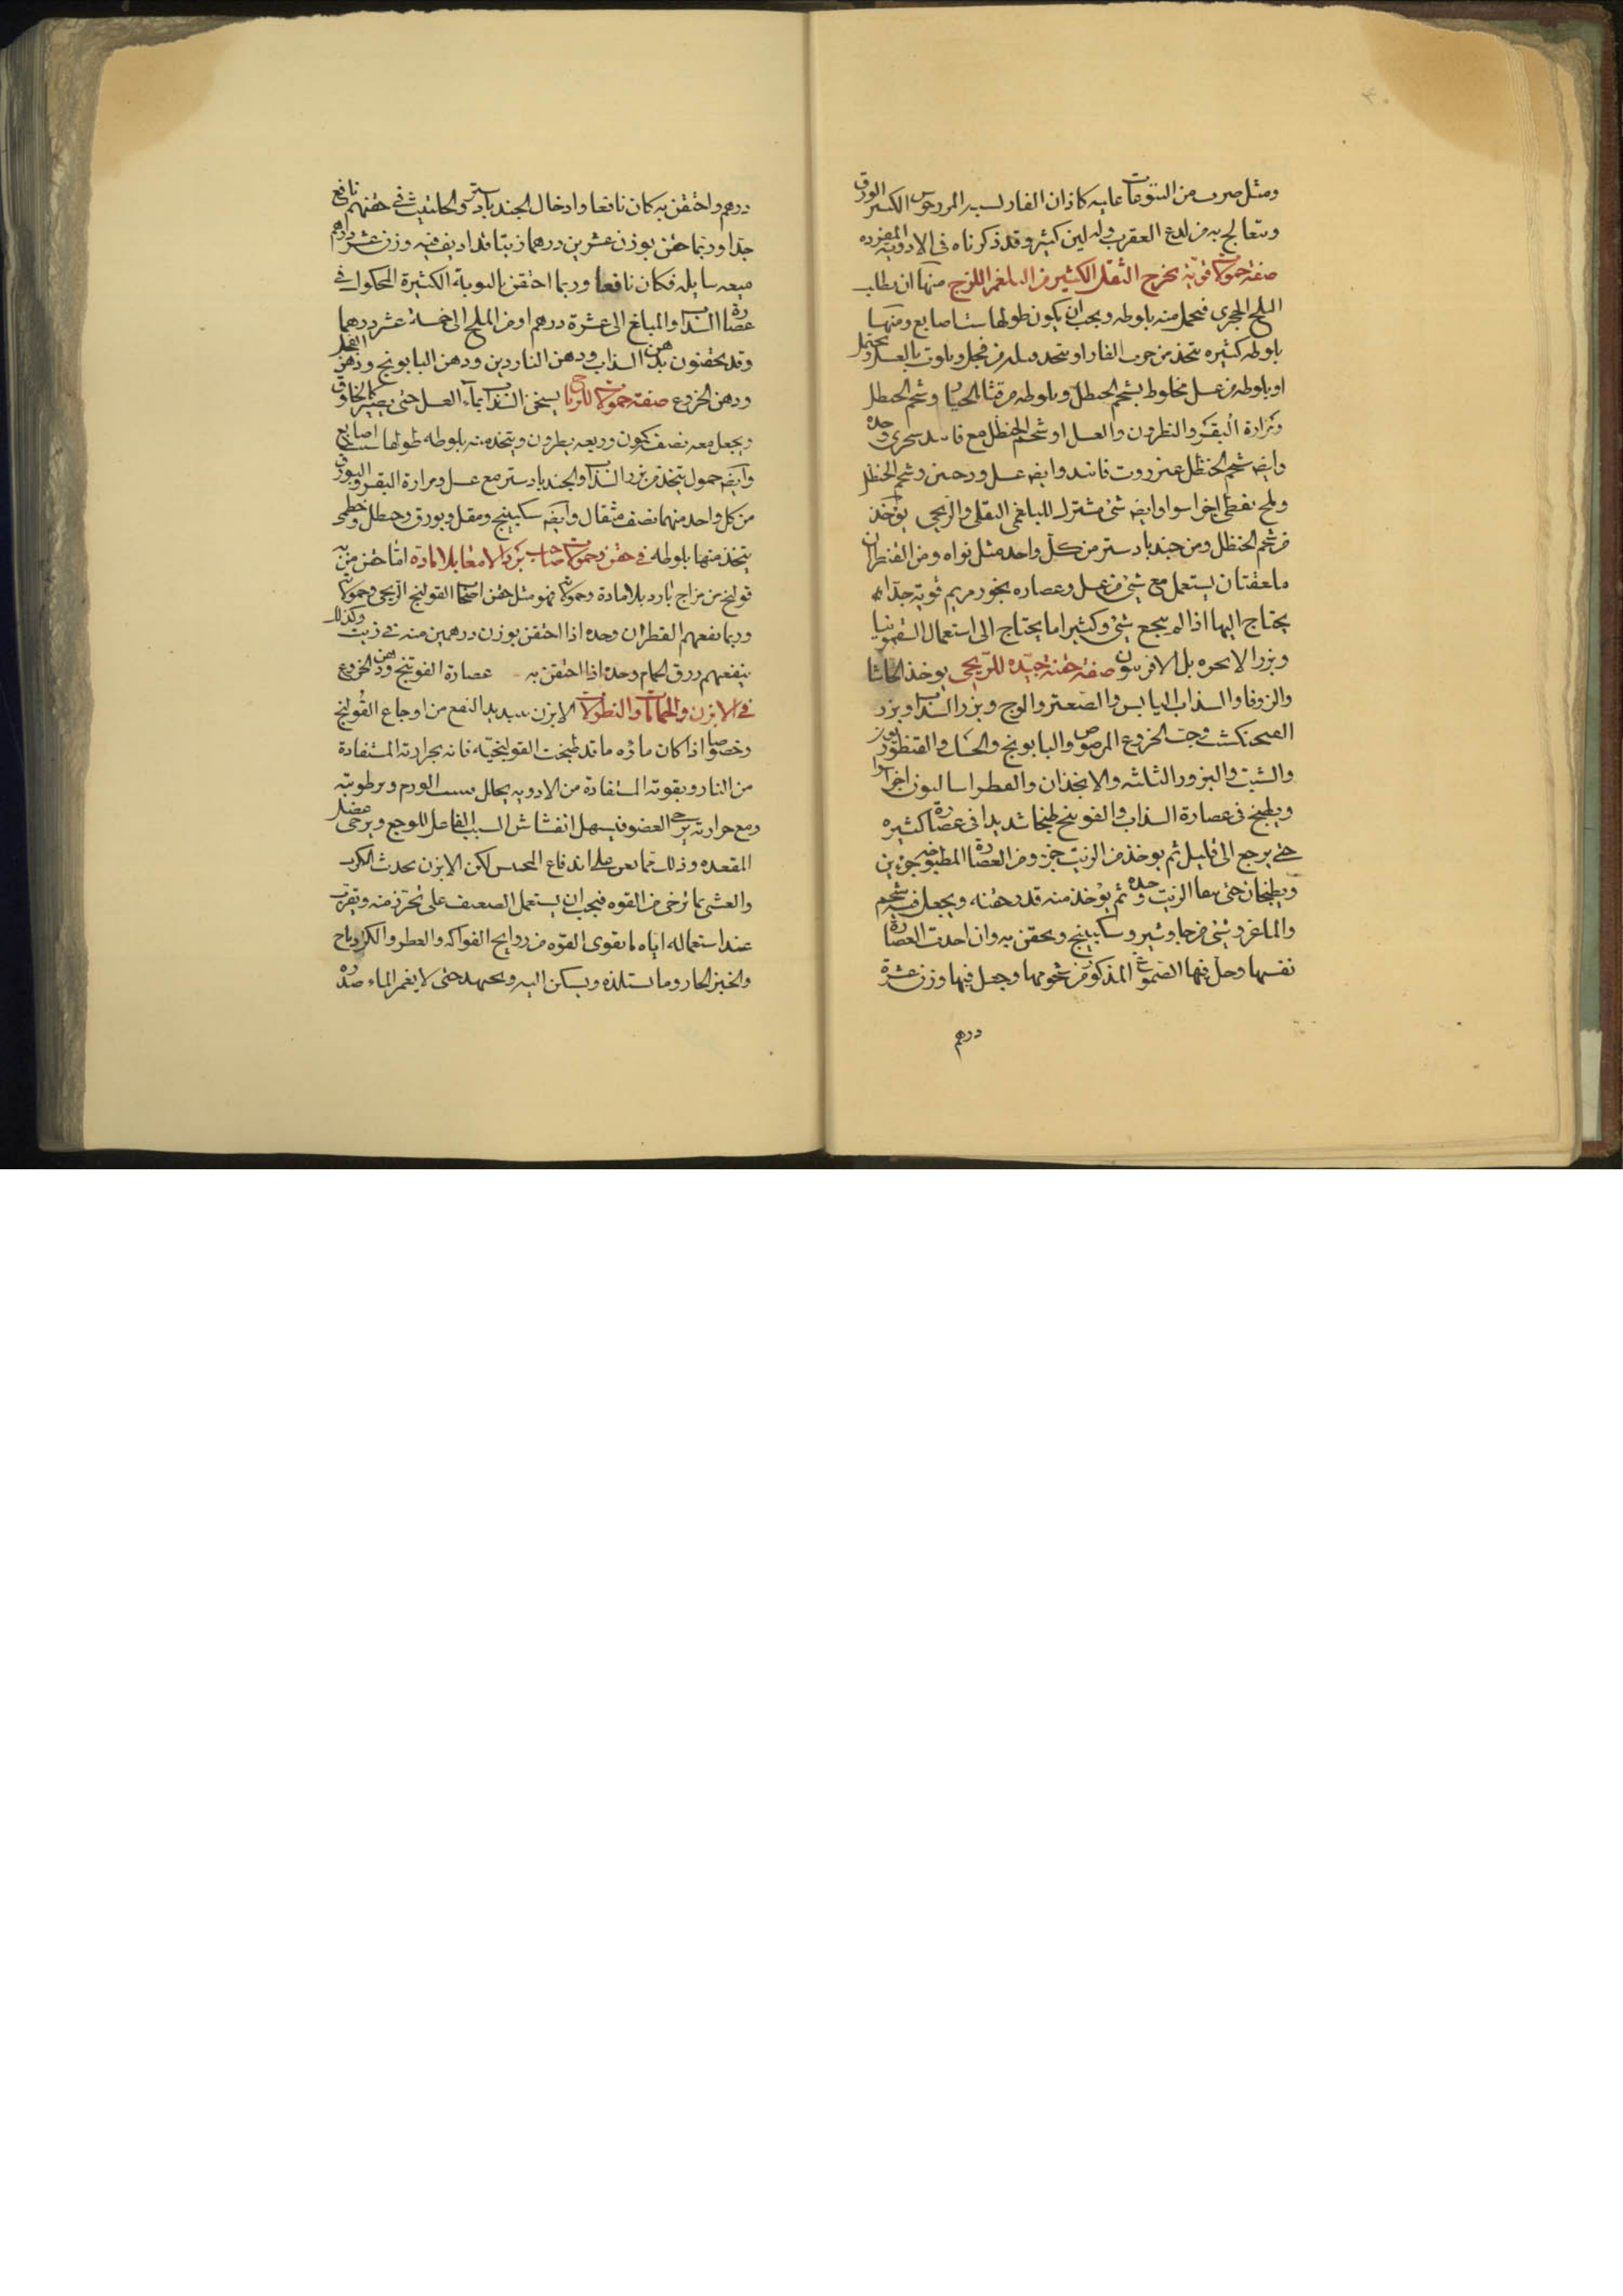 ومثل ضرب من اليتوعات عليه كاذان الفار لسه المردحوس الكبير الورق
ويتعالج به من لدغ العقرب وله لبن كثير وقد ذكرناه في الادوية المفرده
صفة حمولات قوية تخرج الثقل الكثير من البلغم اللزج منها ان يطلب
الملح الحجري فيحمل منه بلوطه ويجب ان يكون طولها ست اصابع ومنها
بلوطه كثيره تتخذ من خرء الفار او يتخذ من فجل ويلوث بالعسل ويحتمل
او بلوطه من عسل مخلوط بشحم الحنظل وبلوطه من قثا الحمار وشحم الحنظل
ومرارة البقر والنطرون والعسل او شحم الحنظل مع فانيد سجزى وحده
وايضه شحم الحنظل عنزروت فانيد وايضه عسل وشحم الحنظل
وملح نفطى اجزا سوا وايضه شئ مشترك للبلغمى الثقلى والريحى يؤخذ
من شحم الحنظل ومن جندبادستر من كل واحد مثل نواه ومن القنطران
ملعقتان يستعمل مع شئ من عسل وعصاره بخور مريم قوية جدا
يحتاج اليها اذا لم ينجع شئ وكثيرا ما يحتاج الى استعمال السقمونيا
وبزر الانجره بل الافربيون صفة حقنة جيده للريحى يوخذ الحاشا
والزوفا والسذاب اليابس والصعتر والوج وبزر السذاب وبزر
الفنجنكشت وحب الخروع المرضوض والبابونج والحسك والقنطوريون
والشبت والبزور الثلثه والانجذان والفطراساليون اجزا سوا
ويطبخ في عصارة السذاب والفوتنج طبخا شديدا فى عصارة كثيره
حتى يرجع الى قليل ثم يوخذ من الزيت جزء ومن العصارة المطبوخة جزءين
ويطبخان حتى يبقا الزيت وحده ثم يؤخذ منه قدر حقنه ويجعل فيه شحم
والماعز وشئ من جاوشير وسكبينج ويحقن به وان اخذت العصارة
نفسها وحل فيها الصموغ المذكور من شحومها وجعل فيها وزن عشرة
درهم
درهم واحتقن به كان نافعا وادخال الجندبادستر والحلتيث في حقنهم نافع
جدا وربما حقن بوزن عشرين درهما زيتا قد اديف فيه وزن عشر دراهم
ميعه سايله فكان نافعا وربما احتقن بالبورق الكثيرة المحكوك في
عصارة السذاب والمبلغ الى عشرة درهم او من الملح الى خمسة عشر درهما
وقد يحقنون بدهن السذاب ودهن الناردين ودهن البابونج ودهن الفجل
ودهن الخروع صفة حمولات للرياح يسخن السذاب بماء العسل حتى يصير كالخلوق
ويجعل معه نصفه كمون وربعه نطرون ويتخذ منه بلوطه طولها ست اصابع
وايضه حمول يتخذ من بزر السذاب والجندبادستر مع عسل ومرارة البقر والبورق
من كل واحد منهما نصف مثقال وايضه سكبينج ومقل وبورق وحنظل وخطمى
يتخذ منها بلوطه في حقن وحمولات صاحب برد الامعا بلا مادة اما حقن من به
قولنج من مزاج بارد بلا مادة وحمولاته فهو مثل حقن اصحاب القولنج الريحى وحمولاته
وربما نفعهم القطران وحده اذا احتقن بوزن درهمين منه في زيت وكذلك
ينفعهم زرق الحمام وحده اذا احتقن به عصارة الفوتنج ودهن الخروع
في الابزن والحمامات والنطولات الابزن شديد النفع من اوجاع القولنج
وخصوصا اذا كان ماؤه ماء قد طبخت القولنجية فانه بحرارته المستفادة
من النار وبقوته المستفادة من الادويه يحلل سبب الورم وبرطوبته
ومع حرارته يرخى العضو فيسهل انفشاش السبب الفاعل للوجع ويرخى عضل
المقعده وذلك مما يعين على اندفاع المحتبس لكن الابزن يحدث الكرب
والغشى بما يرخى من القوه فيجب ان يستعمل الضعيف على تحرز منه ويقرب
عند استعماله اياه ما يقوى القوه من روايح الفواكه والعطر والكردباح
والخبز الحار وما يستلذه ويسكن اليه ويجتهد حتى لا يغمر الماء صدره